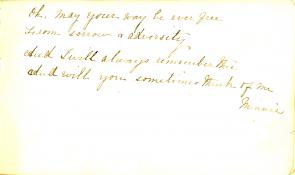 Oh, may your way be ever free
From sorrow & adversity
And I will always remember thee
And will you sometimes think of me
Minnie